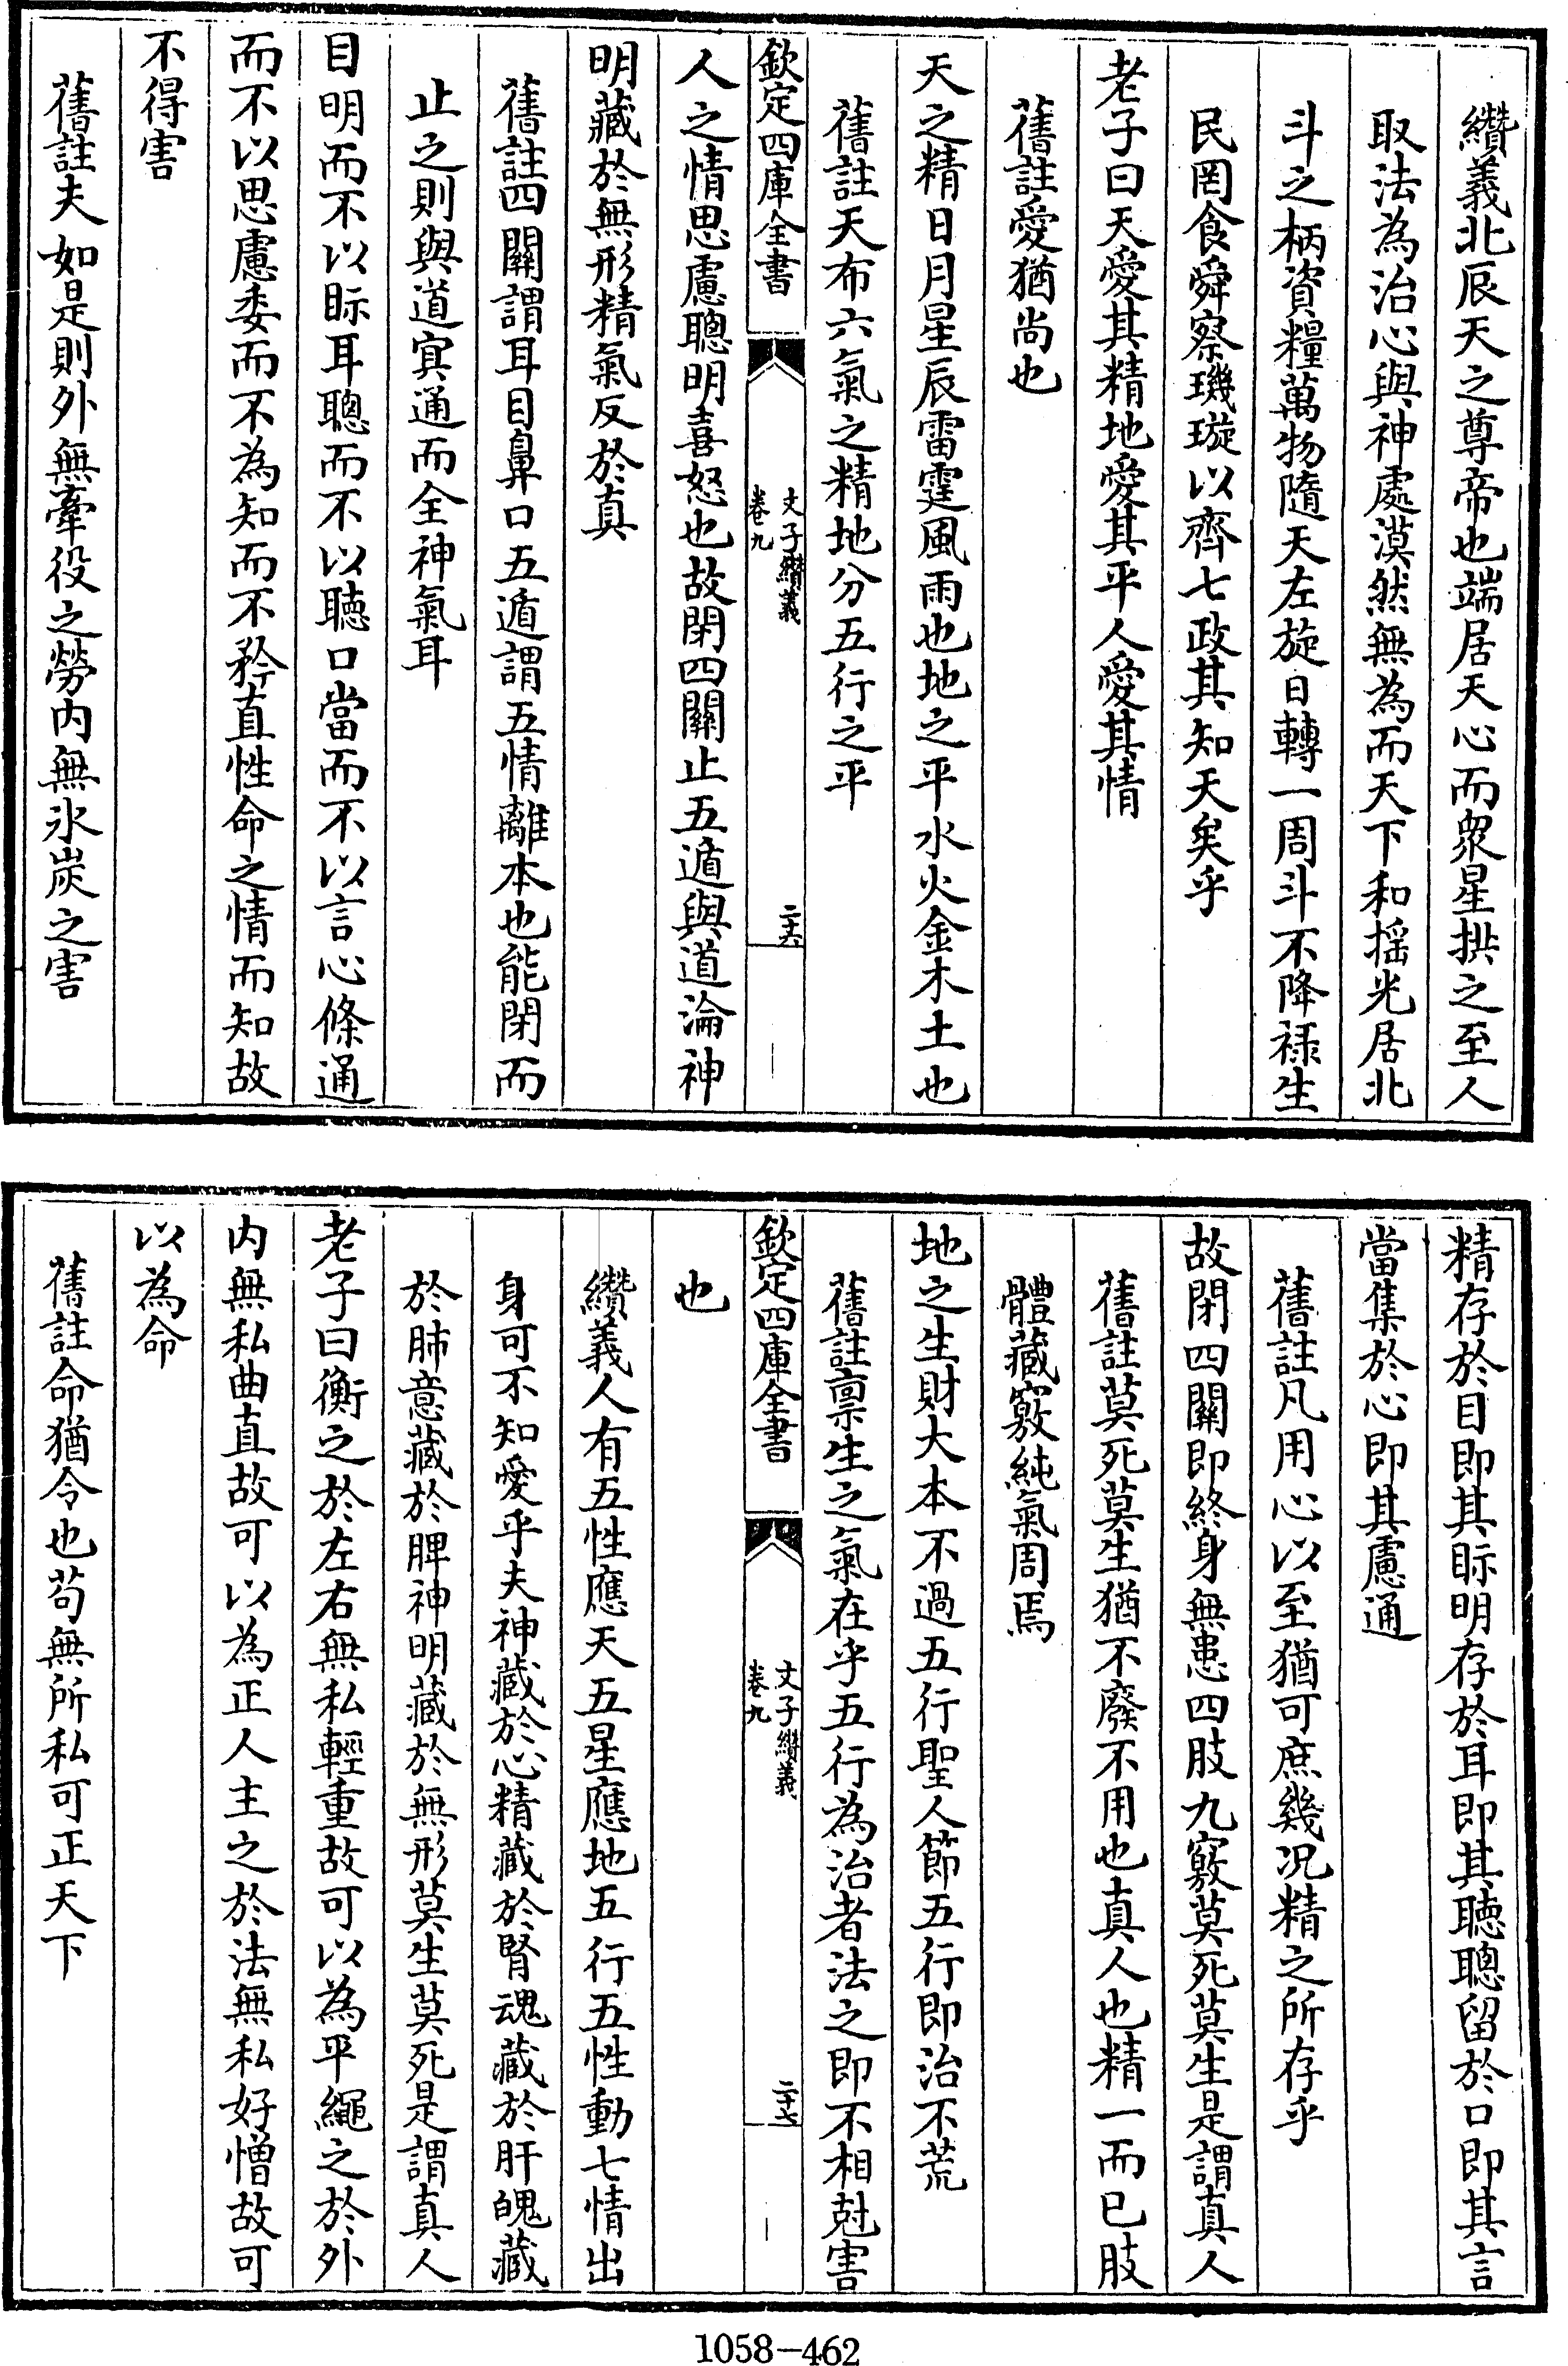 纘義北辰天之尊帝也端居天心而衆星拱之至人
取法為治心與神處漠然無為而天下和揺光居北
斗之柄資糧萬物隨天左旋日轉一周斗不降禄生
民罔食舜察璣璇以齊七政其知天矣乎
老子曰天愛其精地愛其平人愛其情
舊註愛猶尚也
天之精日月星辰雷霆風雨也地之平水火金木土也
舊註天布六氣之精地分五行之平
欽定四庫全書
文子纘義
卷九
二十六
人之情思慮聰明喜怒也故閉四關止五遁與道淪神
明藏於無形精氣反於真
舊註四關謂耳目鼻口五遁謂五情離本也能閉而
止之則與道㝠通而全神氣耳
目明而不以眎耳聰而不以聽口當而不以言心條通
而不以思慮委而不為知而不矜直性命之情而知故
不得害
舊註夫如是則外無牽役之勞内無氷炭之害
精存於目即其眎明存於耳即其聴聰留於口即其言
當集於心即其慮通
舊註凡用心以至猶可庶幾况精之所存乎
故閉四關即終身無患四肢九竅莫死莫生是謂真人
舊註莫死莫生猶不廢不用也真人也精一而已肢
體藏竅純氣周焉
地之生財大本不過五行聖人節五行即治不荒
舊註禀生之氣在乎五行為治者法之即不相尅害
欽定四庫全書
文子纘義
卷九
二十七
也
纘義人有五性應天五星應地五行五性動七情出
身可不知愛乎夫神藏於心精藏於腎魂藏於肝魄藏
於肺意藏於脾神明藏於無形莫生莫死是謂真人
老子曰衡之於左右無私輕重故可以為平繩之於外
内無私曲直故可以為正人主之於法無私好憎故可
以為命
舊註命猶令也苟無所私可正天下
1058-462